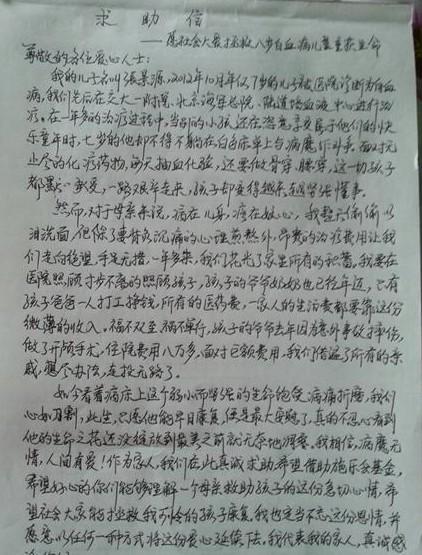 求助信
——愿社会大爱拯救八岁白血病儿童重获生命
尊敬的各位爱心人士:
我的儿子名叫张景源,2012年10月年仅7岁的儿子被医院诊断为白血
病,我们先后在交大一附院、北京海军总院、陆道培血液中心进行治
疗。在一年多的治疗过程中,当别的小孩还在恣意享受属于他们的快
乐童年时,七岁的他却不得不躺在白色床单上与病魔作斗争。面对无
止尽的化疗药物,每天抽血化验,还要做骨穿、腰穿,这一切孩子
都默默承受,一路艰辛走来,孩子却变得越来越坚强懂事。
然而,对于母亲来说,病在儿身,疼在娘心,我整天偷偷以
泪洗面,但除了要背负沉痛的心理煎熬外,昂贵的治疗费用让我
们走向绝望、手足无措,一年多来,我们花光了家里所有的积蓄。我要在
医院照顾寸步不离的照顾孩子,孩子的爷爷奶奶也已经年迈,只有
孩子爸爸一人打工挣钱,所有的医药费,一家人的生活费都要靠这份
微薄的收入。福不双至祸不单行,孩子的爷爷去年因意外事故摔伤,
做了开颅手术,住院费用八万多,面对巨额费用,我们借遍了所有的亲
戚,想尽办法,走投无路了。
如今看着病床上这个弱小而坚强的生命饱受病痛折磨,我们
心如刀割,此生,只愿他能早日康复,便是最大安慰了,真的不忍心看到
他的生命之花还没绽放到最美之前就无奈地凋零。我相信,病魔无
情,人间有爱!作为家人,我们在此真诚求助希望借助施乐会基金,
希望好心的你们能够理解一个母亲救助孩子的这份急切心情,希
望社会大家能拯救我可怜的孩子康复,我也定当不忘这份恩情,并
愿意以任何一种方式将这份爱心延续下去,我代表我的家人,真诚感